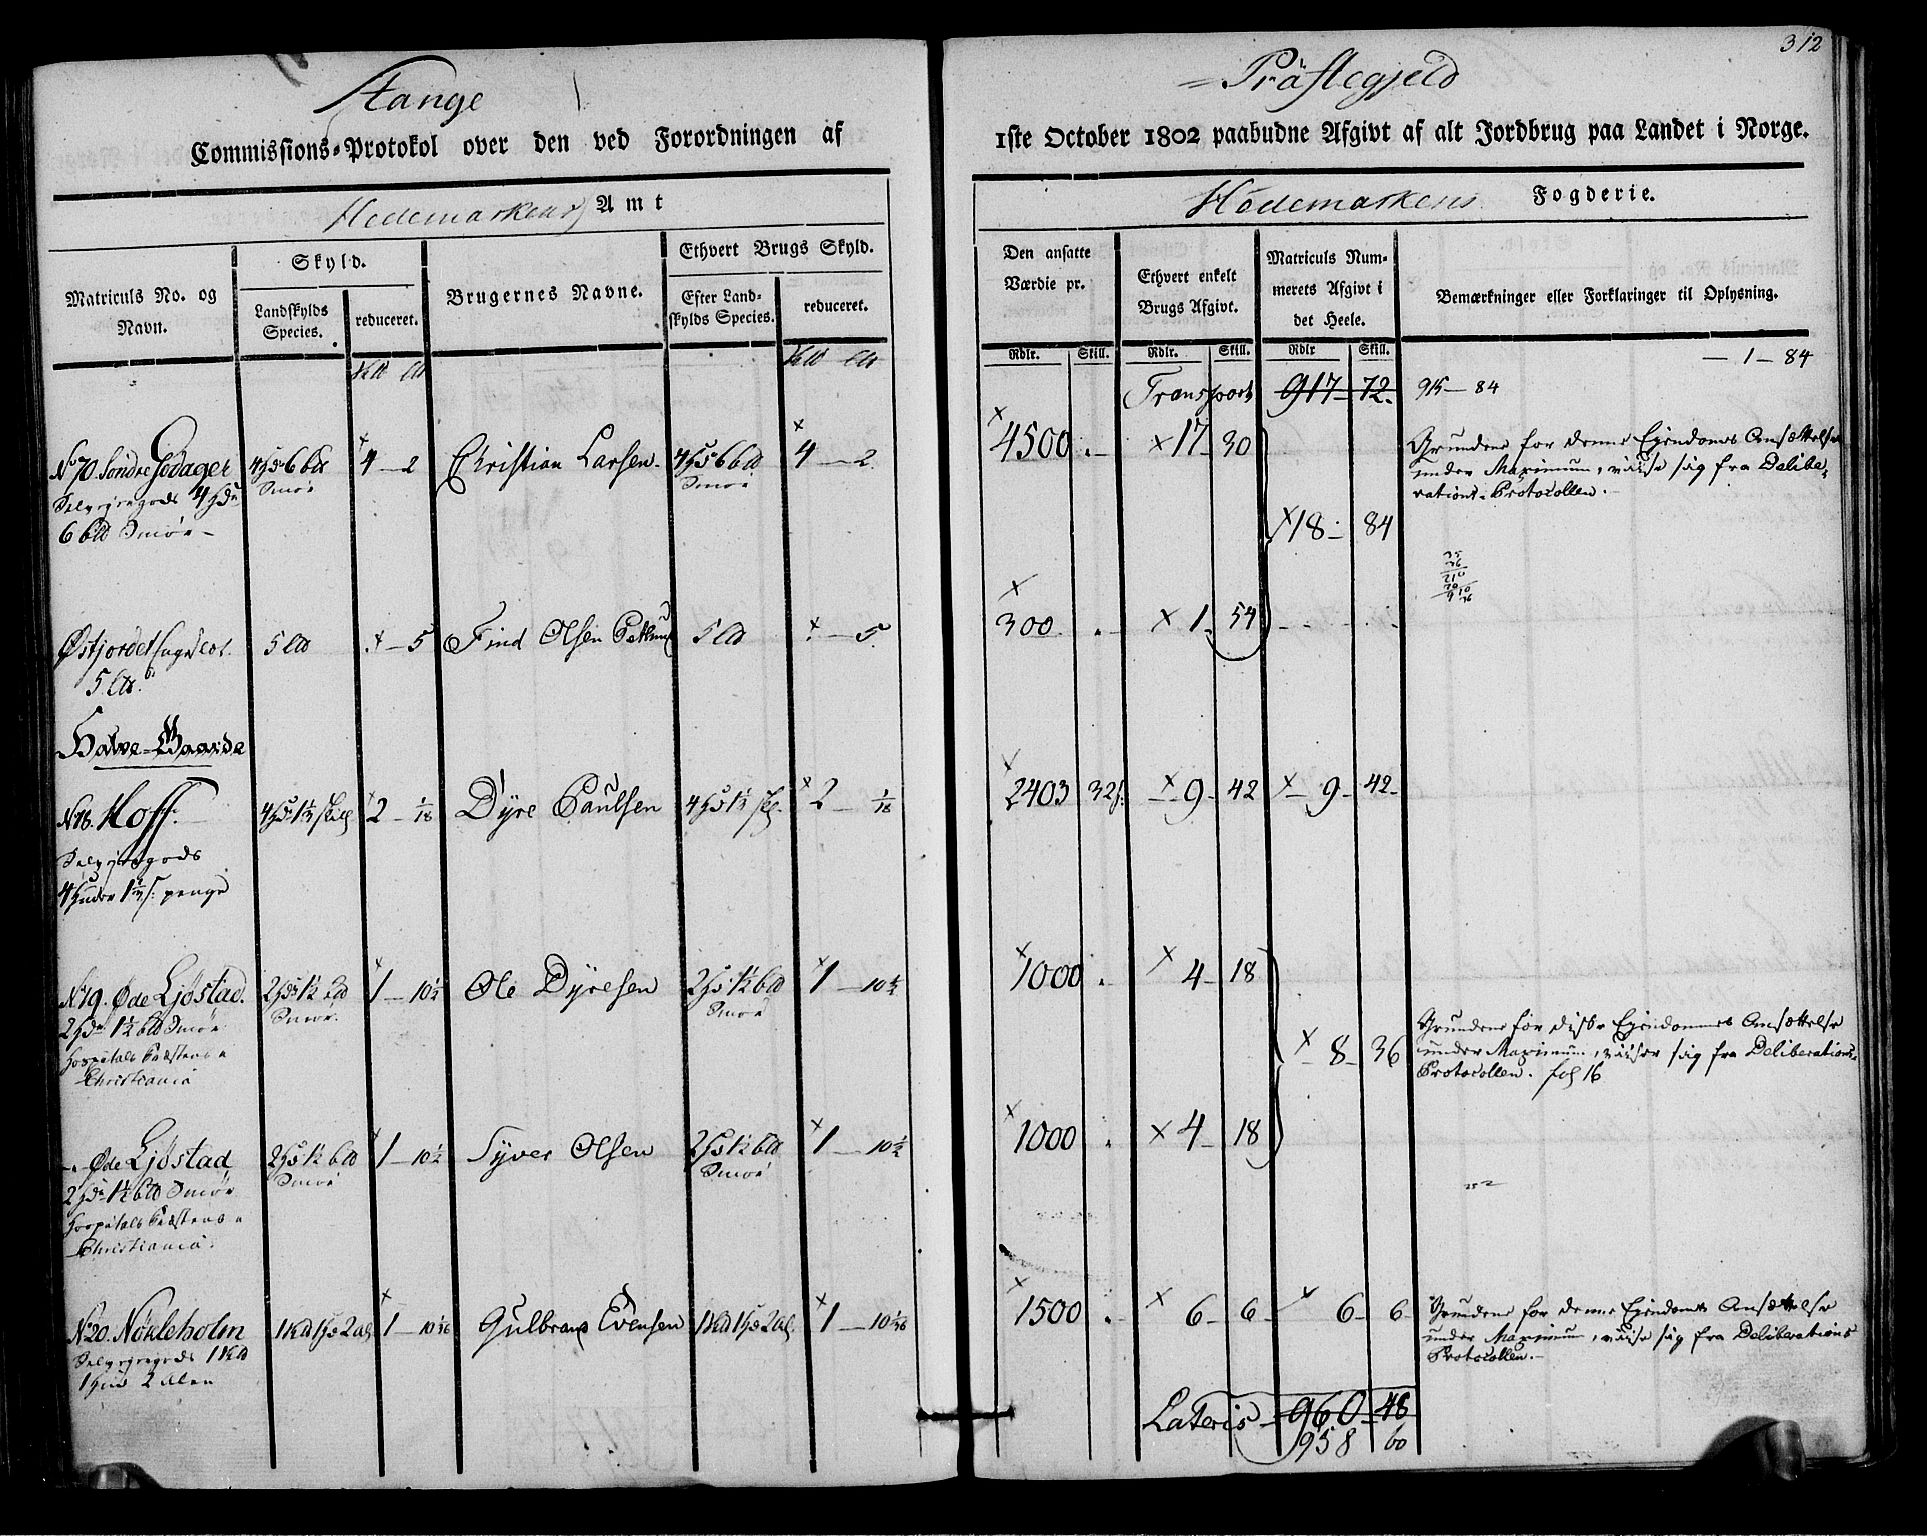 312
Stange
Præstegjeld
Commissions-Protokol over den ved Forordningen af
1ste October 1802 paabudne Afgivt af alt Jordbrug paa Landet i Norge.
Hedemarkens Amt
Hedemarkens Fogderie.
Matriculs No. og Navn.
Skyld.
Landskylds Species.
reduceret.
Brugernes Navne.
Ethvert Brugs Skyld.
Efter Landskylds Species.
reduceret.
Den ansatte Værdie pr.
Ethvert enkelt Brugs Afgivt.
Matriculs Nummerets Afgivt i det Heele.
Bemærkninger eller Forklaringer til Oplysning.
Rdlr. Skill. Rdlr. Skill. Rdlr Skill.
— 1 — 84
Transport 917 — 72. 915 — 84
No 70. Søndre Godager
6 bld Smør —
4 — 2 Christian Larsen
Smør
4 — 2
4500 . — × 17 — 30
Grundene for denne Ejendoms Ansættelse
under Maximum, viise sig fra Delibe-
rations-Protocollen.
× 18 — 84
Østjordet
5 — 5 Find Olsen
— 5.
300 . — × 1 — 54
Halve-Gaarde
Hoff.
2 — 1/18 Dyre Paulsen
2 — 1/18
2403 32 × — 9 — 42 × — 9 — 42 —
No 19. Øde Ljøstad.
2 hdr 1½ bld Smør
Hospitals Præstens
Christiania
Smør.
1 — 10½ Ole Dyresen
Smør
1 — 10½
1000 . × 4 — 18
× 8 — 36
Grundene for disse Ejendommes Ansættelse
under Maximum, viiser sig fra Deliberations-
Protocollen. fol 16
Øde Ljøstad
2 hdr 1½ bld Smør
Hospitals Præstens
Christiania.
Smør
1 — 10½ Syver Olsen
Smør
1 — 10½
1000 . × 4 — 18
No 20. Nøkleholm
2 Alen
1 — 10 Gulbrand Evensen
1 — 10
1500 . × 6 — 6 × 6 — 6
Grundene for denne Ejendoms Ansættelse
under Maximum, viise sig fra Deliberations
Protocollen. —
Lateris — 960 — 48
958 60